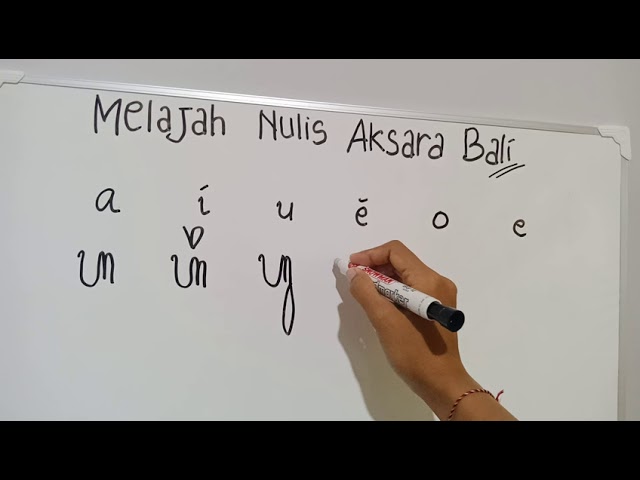 Melajah Nulis Aksara Bali
a i u ĕ o e
ᬳ ᬳᬶ ᬳᬸ